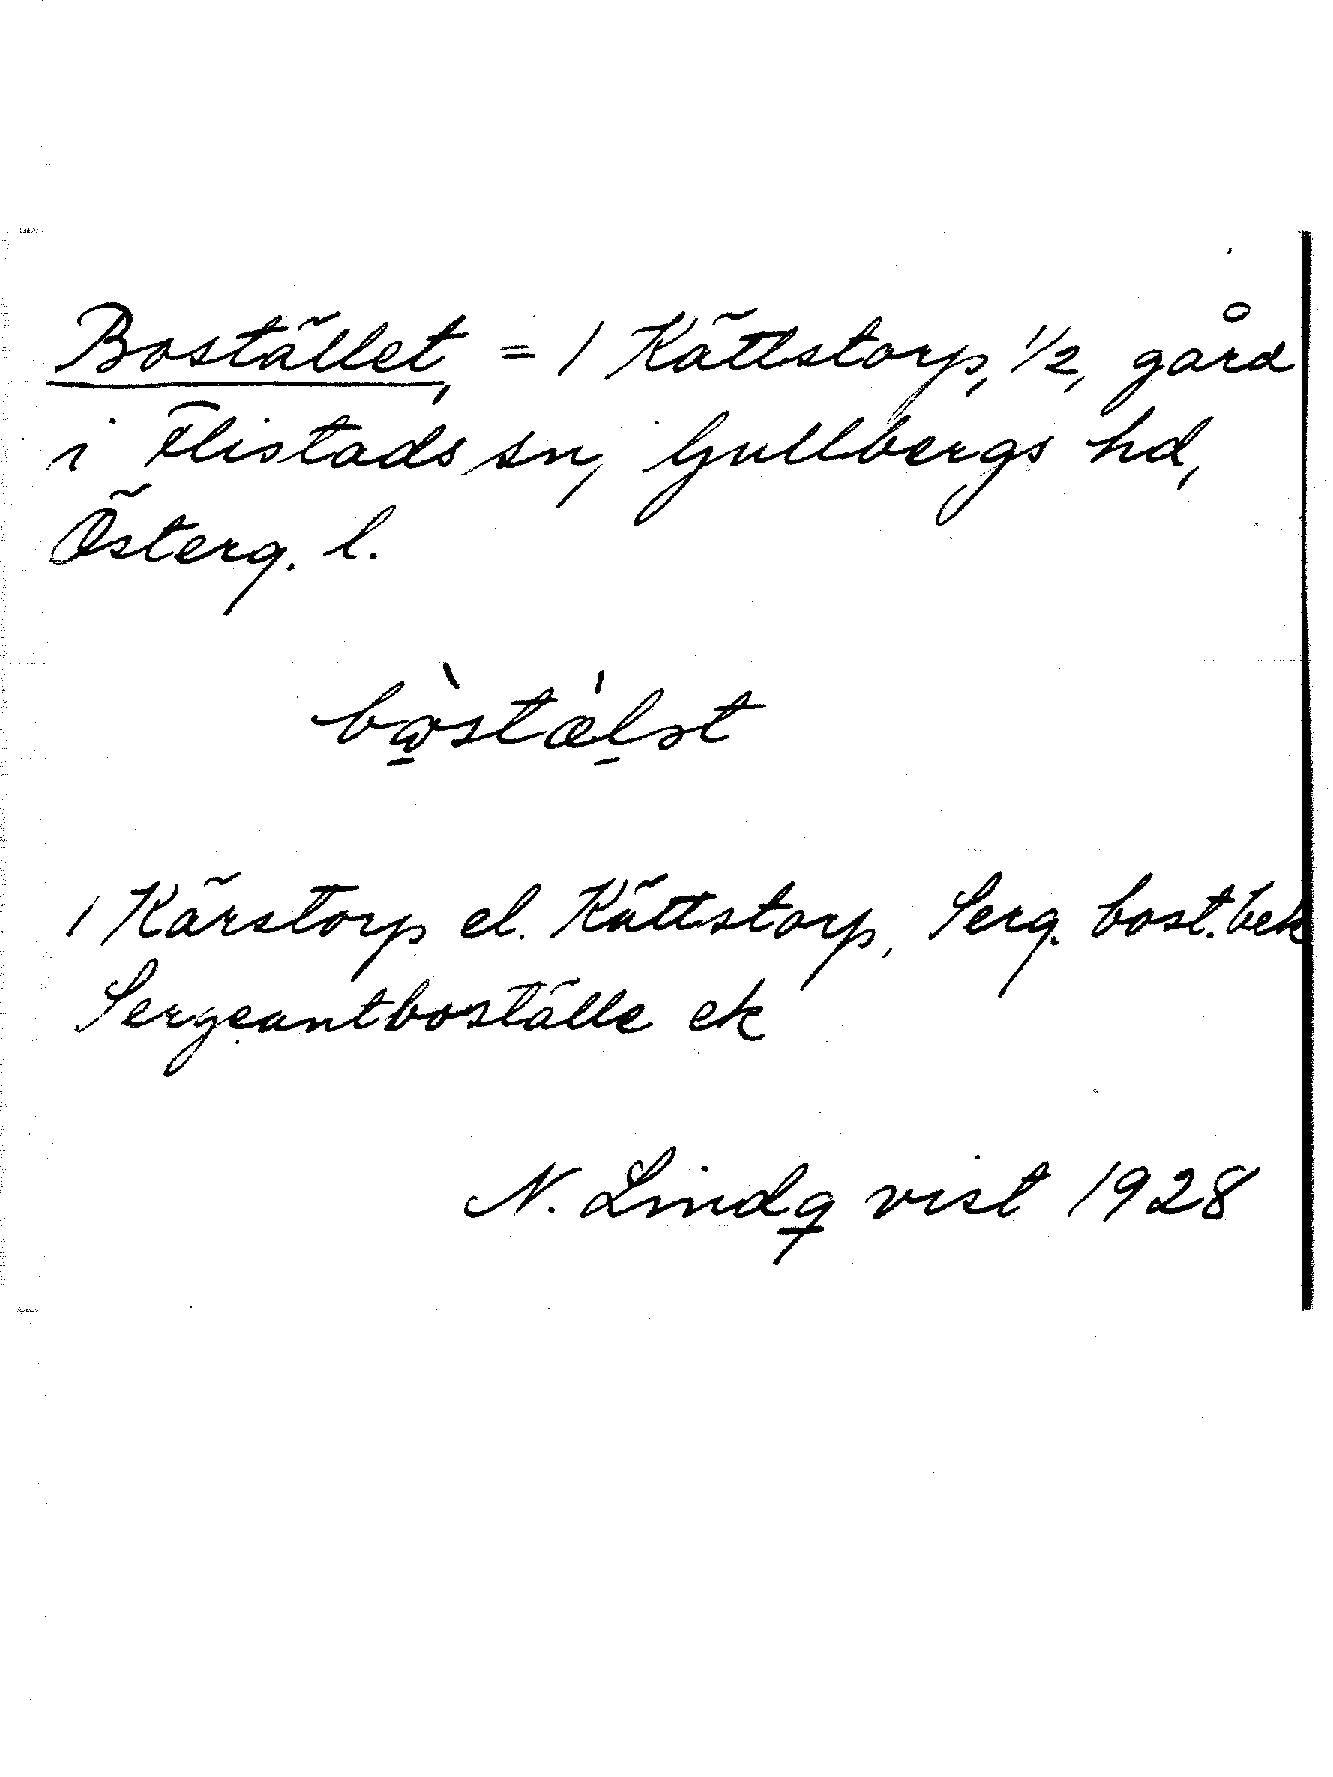 Bostället, = 1 Kättstorp, 1/2, gård
i Flistads sn, Gullbergs hd,
Österg. l.
bὼstǽlət
1 Kärstorp el. Kättstorp, Serg. bost. bek
Sergeantboställe ek
N. Lindqvist 1928